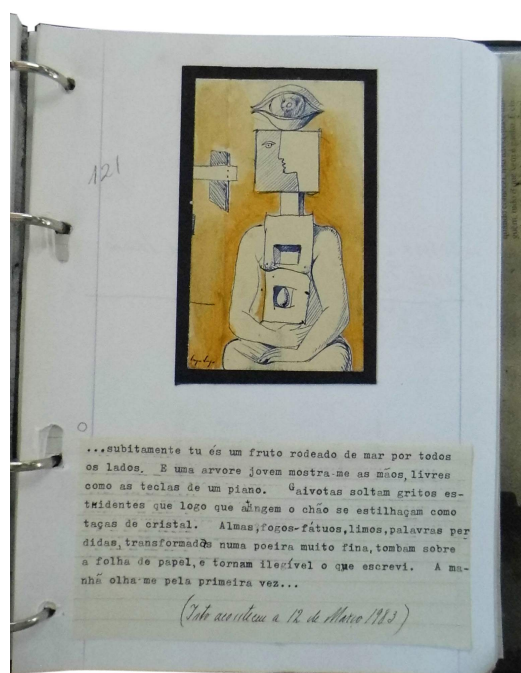 121
...subitamente tu és um fruto rodeado de mar por todos
os lados. E uma arvore jovem mostra-me as mãos, livres
como as teclas de um piano. Gaivotas soltam gritos es-
tridentes que logo que atingem o chão se estilhaçam como
taças de cristal. Almas,fogos-fátuos,limos,palavras per
didas,transformadas numa poeira muito fina,tombam sobre
a folha de papel,e tornam ilegível o que escrevi. A ma-
nhã olha-me pela primeira vez...
(Isto aconteceu a 12 de Março 1983)